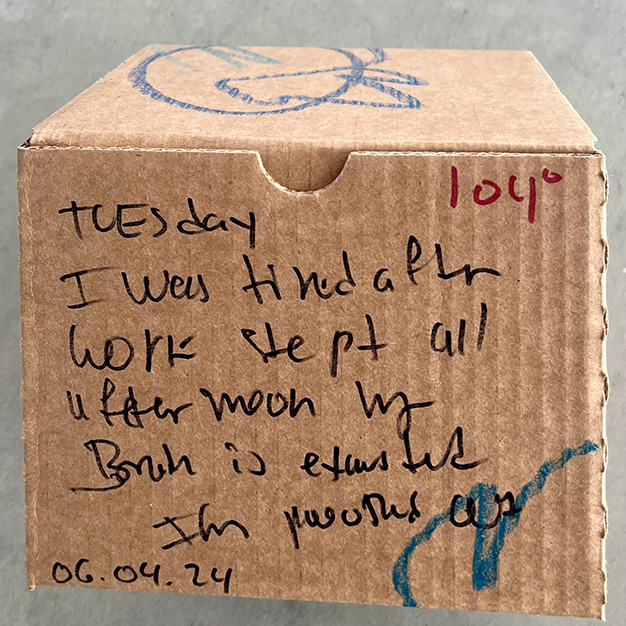 104°
TUESday
I was tired after
work slept all
afternoon my
Brain is exausted
Im
06.04.24